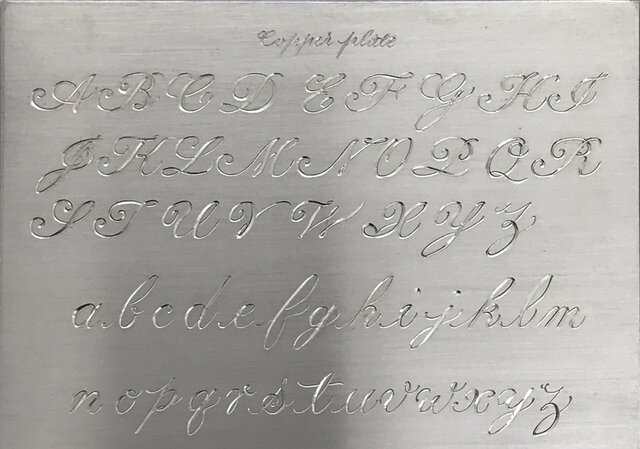 Copper-plate
A B C D E F G H I
J K L M N O P Q R
S T U V W X Y Z
a b c d e f g h i j k l m
n o p q r s t u v w x y z